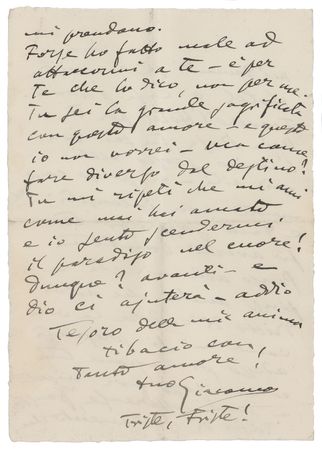 mi prendano.
Forse ho fatto male ad
attaccarmi a te – è per
Te che lo dico, non per me.
Tu sei la grande sagrificata
con questo amore – e questo
io non vorrei – ma come
fare diverso dal destino?
Tu mi ripeti che mi ami
come mai hai amato
e io sento scendermi
il paradiso nel cuore!
Dunque? avanti – e
dio ci ajuterà – addio
Tesoro della mia anima
ti bacio con
tanto amore!
tuo Giacomo
Triste, Triste!